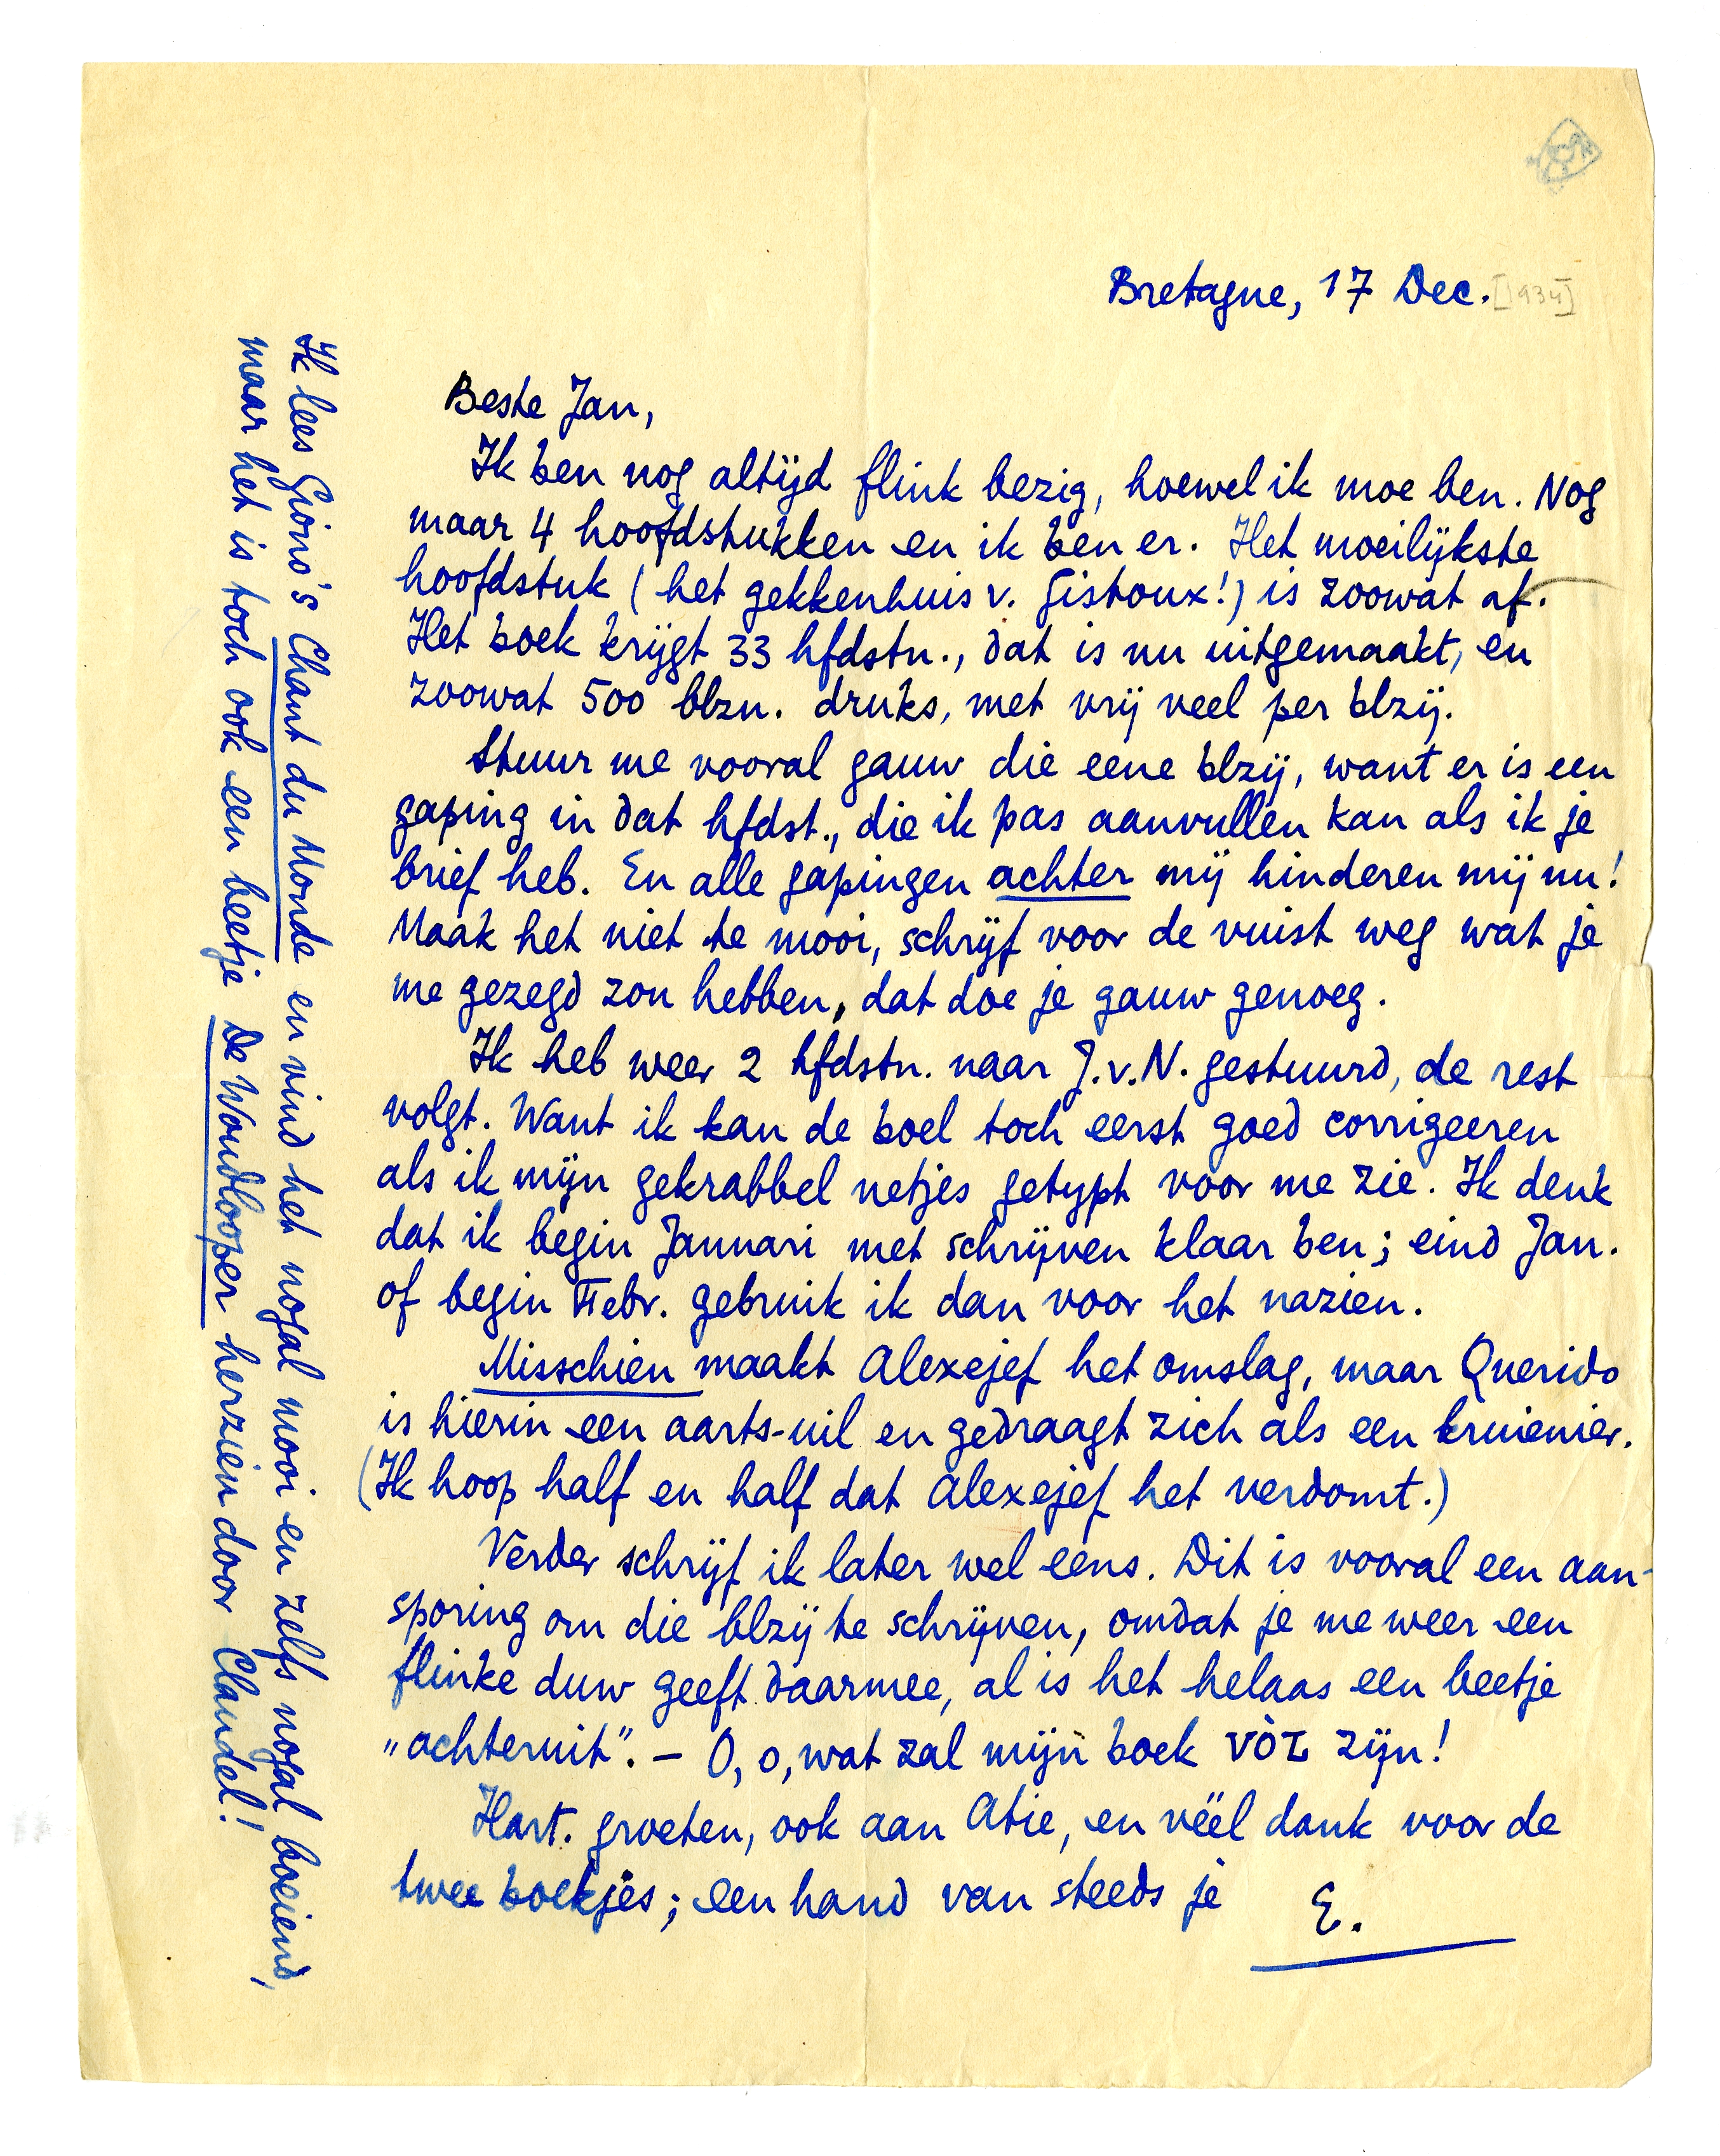 Bretagne, 17 Dec. [1934]
Beste Jan,
Ik ben nog altijd flink bezig, hoewel ik moe ben. Nog
maar 4 hoofdstukken en ik ben er. Het moeilijkste
hoofdstuk (het gekkenhuis v. Gistoux!) is zoowat af.
Het boek krijgt 33 hfdstn., dat is nu uitgemaakt, en
zoowat 500 blzn. druks, met vrij veel per blzij.
Stuur me vooral gauw die eene blzij, want er is een
gaping in dat hfdst., die ik pas aanvullen kan als ik je
brief heb. En alle gapingen achter mij hinderen mij nu!
Maak het niet te mooi, schrijf voor de vuist weg wat je
me gezegd zou hebben, dat doe je gauw genoeg.
Ik heb weer 2 hfdstn. naar J.v.N. gestuurd, de rest
volgt. Want ik kan de boel toch eerst goed corrigeeren
als ik mijn gekrabbel netjes getypt voor me zie. Ik denk
dat ik begin Januari met schrijven klaar ben; eind Jan.
of begin Febr. gebruik ik dan voor het nazien.
Misschien maakt Alexejef het omslag, maar Querido
is hierin een aarts-uil en gedraagt zich als een kruienier.
(Ik hoop half en half dat Alexejef het verdomt.)
Verder schrijf ik later wel eens. Dit is vooral een aan-
sporing om die blzij te schrijven, omdat je me weer een
flinke duw geeft daarmee, al is het helaas een beetje
„achteruit”. — O, o, wat zal mijn boek VÒL zijn!
Hart. groeten, ook aan Atie, en véél dank voor de
twee boekjes; een hand van steeds je E.
Ik lees Giono's Chant du Monde en vind het nogal mooi en zelfs nogal boeiend,
maar het is toch ook een beetje De Woudlooper herzien door Claudel!